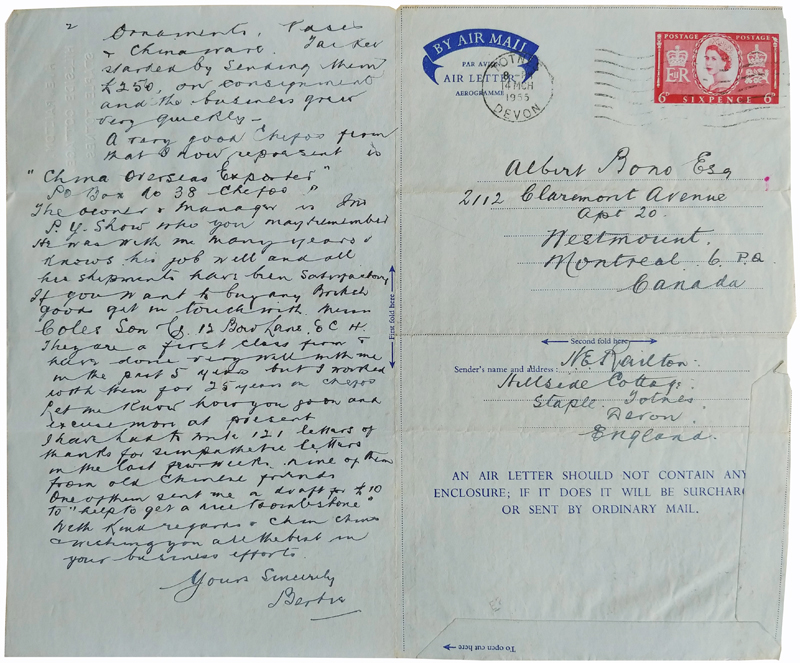 2
Ornaments, Vases
& Chinaware. Tacker
started by sending them
£250, on consignment
and the business grew
very quickly -
A very good Chefoo firm
that I now represent is
"China Overseas Exporter"
PO Box No 38 Chefoo"
The owner & manager is
P. Y. Show who you may remember
He was with me many years &
knows his job well and all
his shipments have been satisfactory
If you want to buy any British
goods get in touch with
Coles Son 12 Bow Lane, E C 4.
They are a first class firm &
have done very well with me
in the past 5 years but I worked
with them for 25 years in Chefoo
Let me know how you go on and
excuse more at present
I have had to write 121 letters of
thanks for sympathetic letters
in the last few weeks. nine of them
from old Chinese friends
One of them sent me a draft for £10
to "help to get a nice tombstone"
With kind regards & Chin Chins
& wishing you all the best in
your business efforts.
Yours Sincerely
Bertie
First fold here
BY AIR MAIL
PAR AVION
AIR LETTER
AEROGRAMME
TOTNES
14 MCH
1955
DEVON
POSTAGE POSTAGE
E II R
6D SIXPENCE 6D
Albert Bono Esq
2112 Claremont Avenue
Apt 20.
Westmount.
Montreal. 6. P.Q.
Canada
Second fold here
Sender's name and address: N.E. Railton.
Hillside Cottage.
Staple. Totnes.
Devon.
England.
AN AIR LETTER SHOULD NOT CONTAIN ANY
ENCLOSURE; IF IT DOES IT WILL BE SURCHARG
OR SENT BY ORDINARY MAIL.
To open cut here